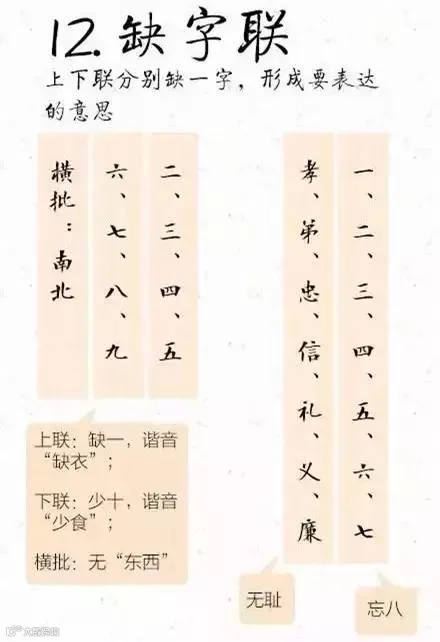 12.缺字联
上下联分别缺一字，形成要表达
的意思
一、二、三、四、五、六、七
孝、弟、忠、信、礼、义、廉
忘八
无耻
二、三、四、五
六、七、八、九
横批：南北
上联：缺一，谐音
“缺衣”；
下联：少十，谐音
“少食”；
横批：无“东西”